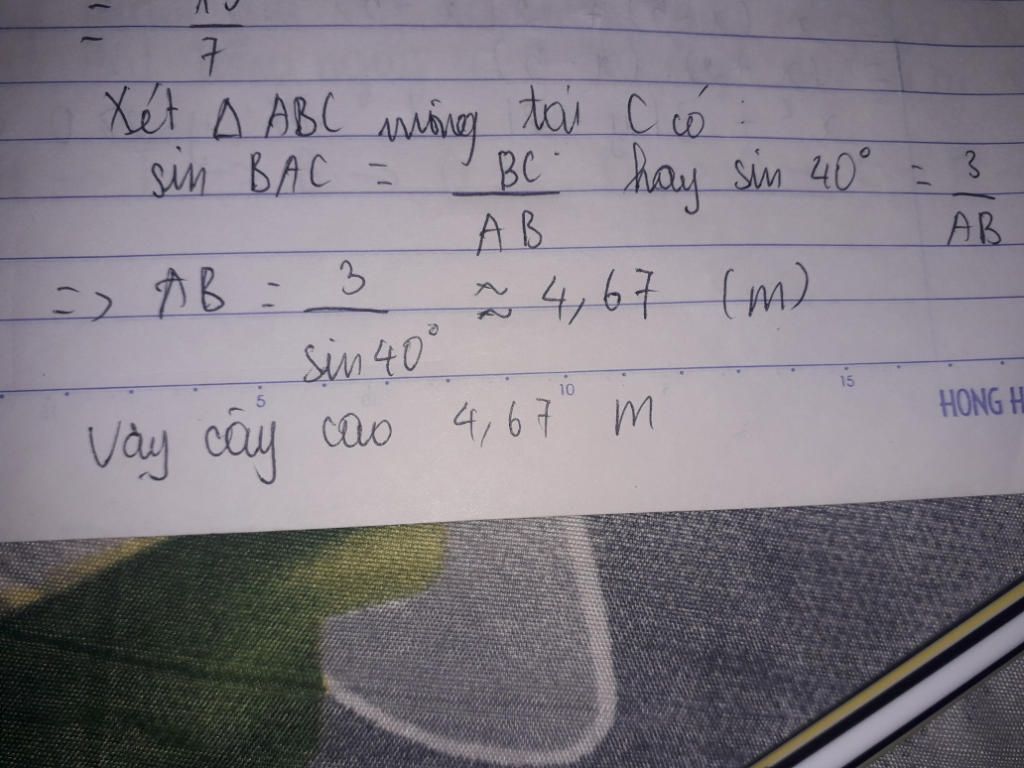 =
7
Xét Δ ABC vuông tại C có :
sin BAC = BC / AB hay sin 40° = 3 / AB
=> AB = 3 / sin 40° ≈ 4,67 (m)
5 10 15
HONG H
Vậy cây cao 4,67 m